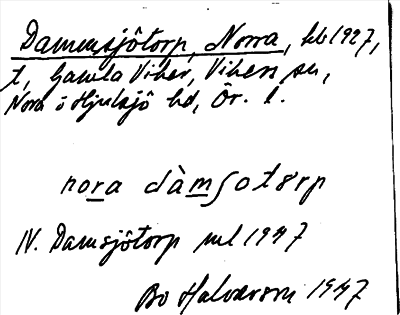 Dammsjötorp, Norra, hb 1927,
t, Gamla Viker, Vikers sn,
Nora o Hjulsjö hd, Ör. l.
nora dàmʃotɵrp
IV. Damsjötorp ml 1947
Bo Halvarson 1947